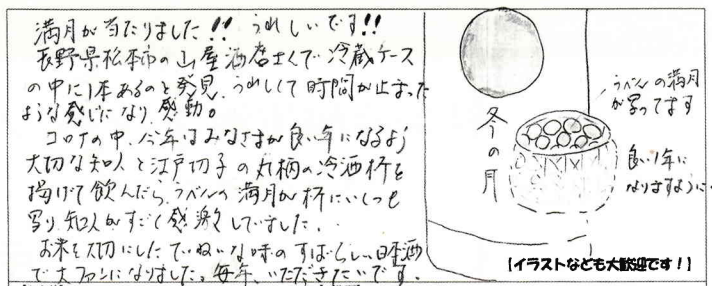 満月が当たりました!! うれしいです!!
長野県松本市の山屋酒店さんで冷蔵ケース
の中に1本あるのと発見、うれしくて時間が止まった
ような感じになり、感動。
コロナの中、今年はみなさまが良い年になるよう
大切な知人と江戸切子の丸柄の冷酒杯を
掲げて飲んだら、ラベルの満月が杯にいくつも
写り、知人がすごく感激していました。
お米を大切にしたていねいな味のすばらしい日本酒
で大ファンになりました。毎年、いただきたいです。
冬の月
ラベルの満月
が写ってます
良い年に
なりますように
【イラストなども大歓迎です!】